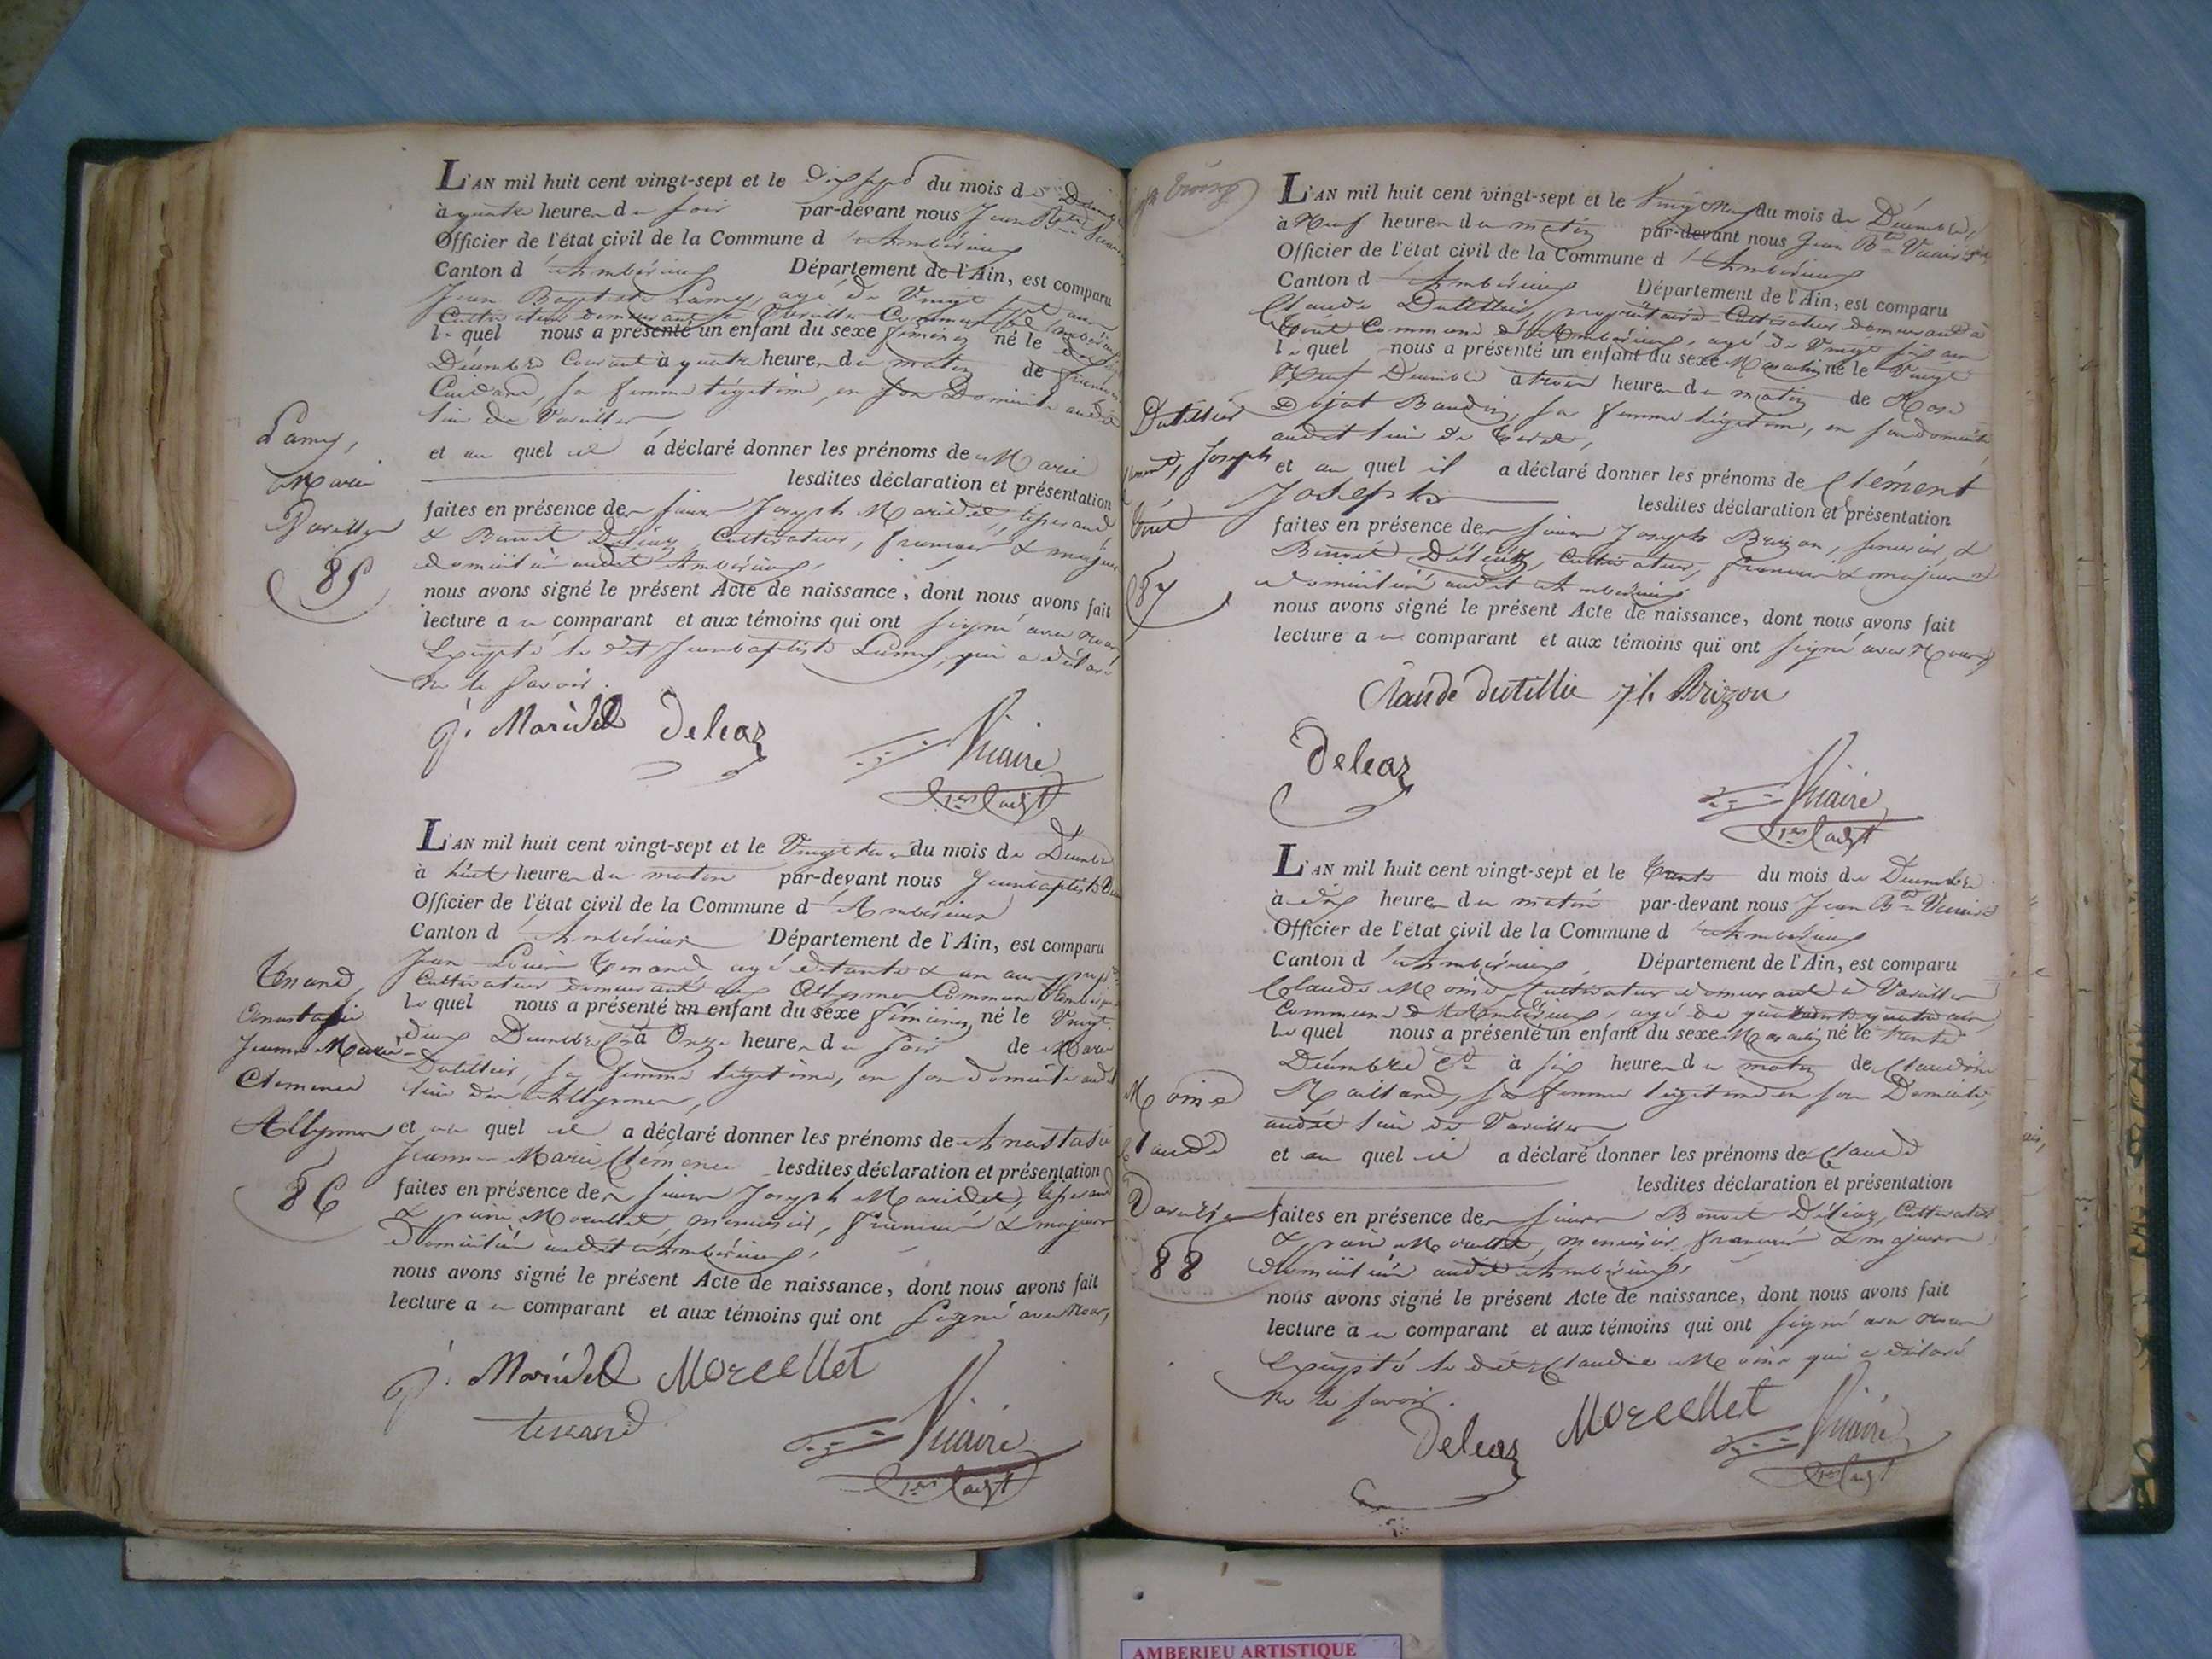 L'AN mil huit cent vingt-sept et le dix sept du mois de
à quatre heures du soir par-devant nous Jean
Officier de l'état civil de la Commune d'Ambérieux
Canton d'Ambérieux Département de l'Ain, est comparu
Jean Baptiste Lamy, agé de Vingt sept ans
Cultivateur demeurant à Vareilles Commune
le quel nous a présenté un enfant du sexe féminin né le dix
Décembre Courant à quatre heures du matin de
sa femme légitime, en son Domicile audit
lieu de Vareilles
Lamy,
Marie
Vareilles
85
et au quel il a déclaré donner les prénoms de Marie
lesdites déclaration et présentation
faites en présence des sieurs Joseph Maridet, tisserand
& Benoit Deleaz, Cultivateur, français & majeurs
domiciliés audit Ambérieux,
nous avons signé le présent Acte de naissance, dont nous avons fait
lecture au comparant et aux témoins qui ont signé avec nous
Excepté le dit Jean baptiste Lamy, qui a déclaré
ne le savoir.
j. Maridet Deleaz Vicaire
1er Adjt
L'AN mil huit cent vingt-sept et le Vingt trois du mois de Décembre
à huit heures du matin par-devant nous Jean baptiste
Officier de l'état civil de la Commune d'Ambérieux
Canton d'Ambérieux Département de l'Ain, est comparu
Jean Louis Tenand agé de trente & un ans
Cultivateur demeurant aux Allymes Commune d'Ambérieux
le quel nous a présenté un enfant du sexe féminin né le Vingt
deux Décembre à Onze heures du soir de Marie
Dutillier, sa femme légitime, en son domicile audit
lieu des Allymes,
Tenand,
Anastasie
Jeanne Marie
Clemence
Allymes
86
et au quel il a déclaré donner les prénoms de Anastasie
Jeanne Marie Clémence lesdites déclaration et présentation
faites en présence des sieurs Joseph Maridet, tisserand
& Morcellet, menuisier, français & majeurs
domiciliés audit Ambérieux,
nous avons signé le présent Acte de naissance, dont nous avons fait
lecture au comparant et aux témoins qui ont signé avec nous,
j. Maridet Morcellet
tenand Vicaire
1er Adjt
L'AN mil huit cent vingt-sept et le Vingt Neuf du mois de Décembre,
à Neuf heures du matin par-devant nous Jean Bte Vicaire
Officier de l'état civil de la Commune d'Ambérieux
Canton d'Ambérieux Département de l'Ain, est comparu
Claude Dutillier, propriétaire Cultivateur demeurant à
Tiret Commune d'Ambérieux, agé de Vingt six ans
le quel nous a présenté un enfant du sexe Masculin né le Vingt
Neuf Décembre à trois heures du matin de Rose
Dojat Baudin, sa femme légitime, en son domicile
audit lieu de Tiret,
Dutillier
Joseph
Tiret
87
et au quel il a déclaré donner les prénoms de Clément
Joseph lesdites déclaration et présentation
faites en présence des sieurs Joseph Brizon, &
Benoit Deleaz, Cultivateur, français & majeurs
domiciliés audit Ambérieux
nous avons signé le présent Acte de naissance, dont nous avons fait
lecture au comparant et aux témoins qui ont signé avec Nous,
Claude dutillie jh Brizon
Deleaz Vicaire
1er Adjt
L'AN mil huit cent vingt-sept et le trente du mois de Décembre
à dix heures du matin par-devant nous Jean Bte Vicaire
Officier de l'état civil de la Commune d'Ambérieux
Canton d'Ambérieux Département de l'Ain, est comparu
Claude Moine, Cultivateur demeurant à Vareilles
Commune d'Ambérieux, agé de quatre ans
le quel nous a présenté un enfant du sexe Masculin né le trente
Décembre Ct à six heures du matin de Claudine
sa femme légitime en son Domicile,
audit lieu de Vareilles
Moine
Claude
Vareilles
88
et au quel il a déclaré donner les prénoms de Claude
lesdites déclaration et présentation
faites en présence des sieurs Benoit Deleaz, Cultivateur
& Morcellet, menuisier, français & majeurs
domiciliés audit Ambérieux,
nous avons signé le présent Acte de naissance, dont nous avons fait
lecture au comparant et aux témoins qui ont signé avec nous
Excepté le dit Claude Moine qui a déclaré
ne le savoir.
Deleaz Morcellet Vicaire
1er Adjt
AMBERIEU ARTISTIQUE